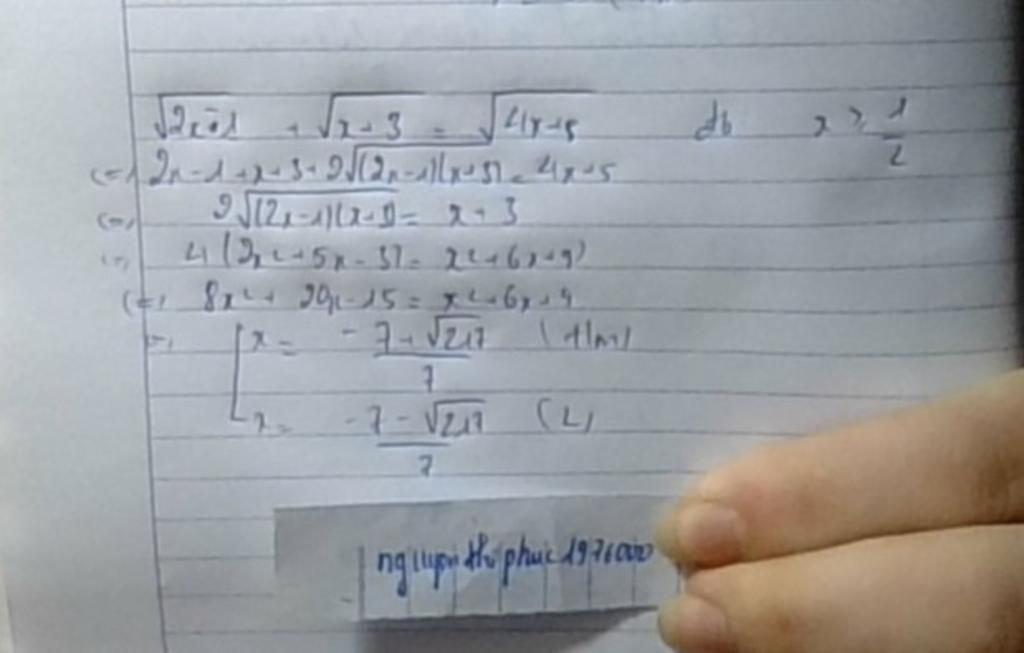 √2x-1 + √x+3 = √4x+5 đk x ≥ 1/2
<=> 2x-1+x+3+2√(2x-1)(x+3) = 4x+5
<=> 2√(2x-1)(x+3) = x+3
<=> 4(2x²+5x-3) = x²+6x+9
<=> 8x²+20x-15 = x²+6x+9
<=> [ x = -7+√217 / 7 (t/m)
x = -7-√217 / 7 (L)
nguyen thi phuc 1976000